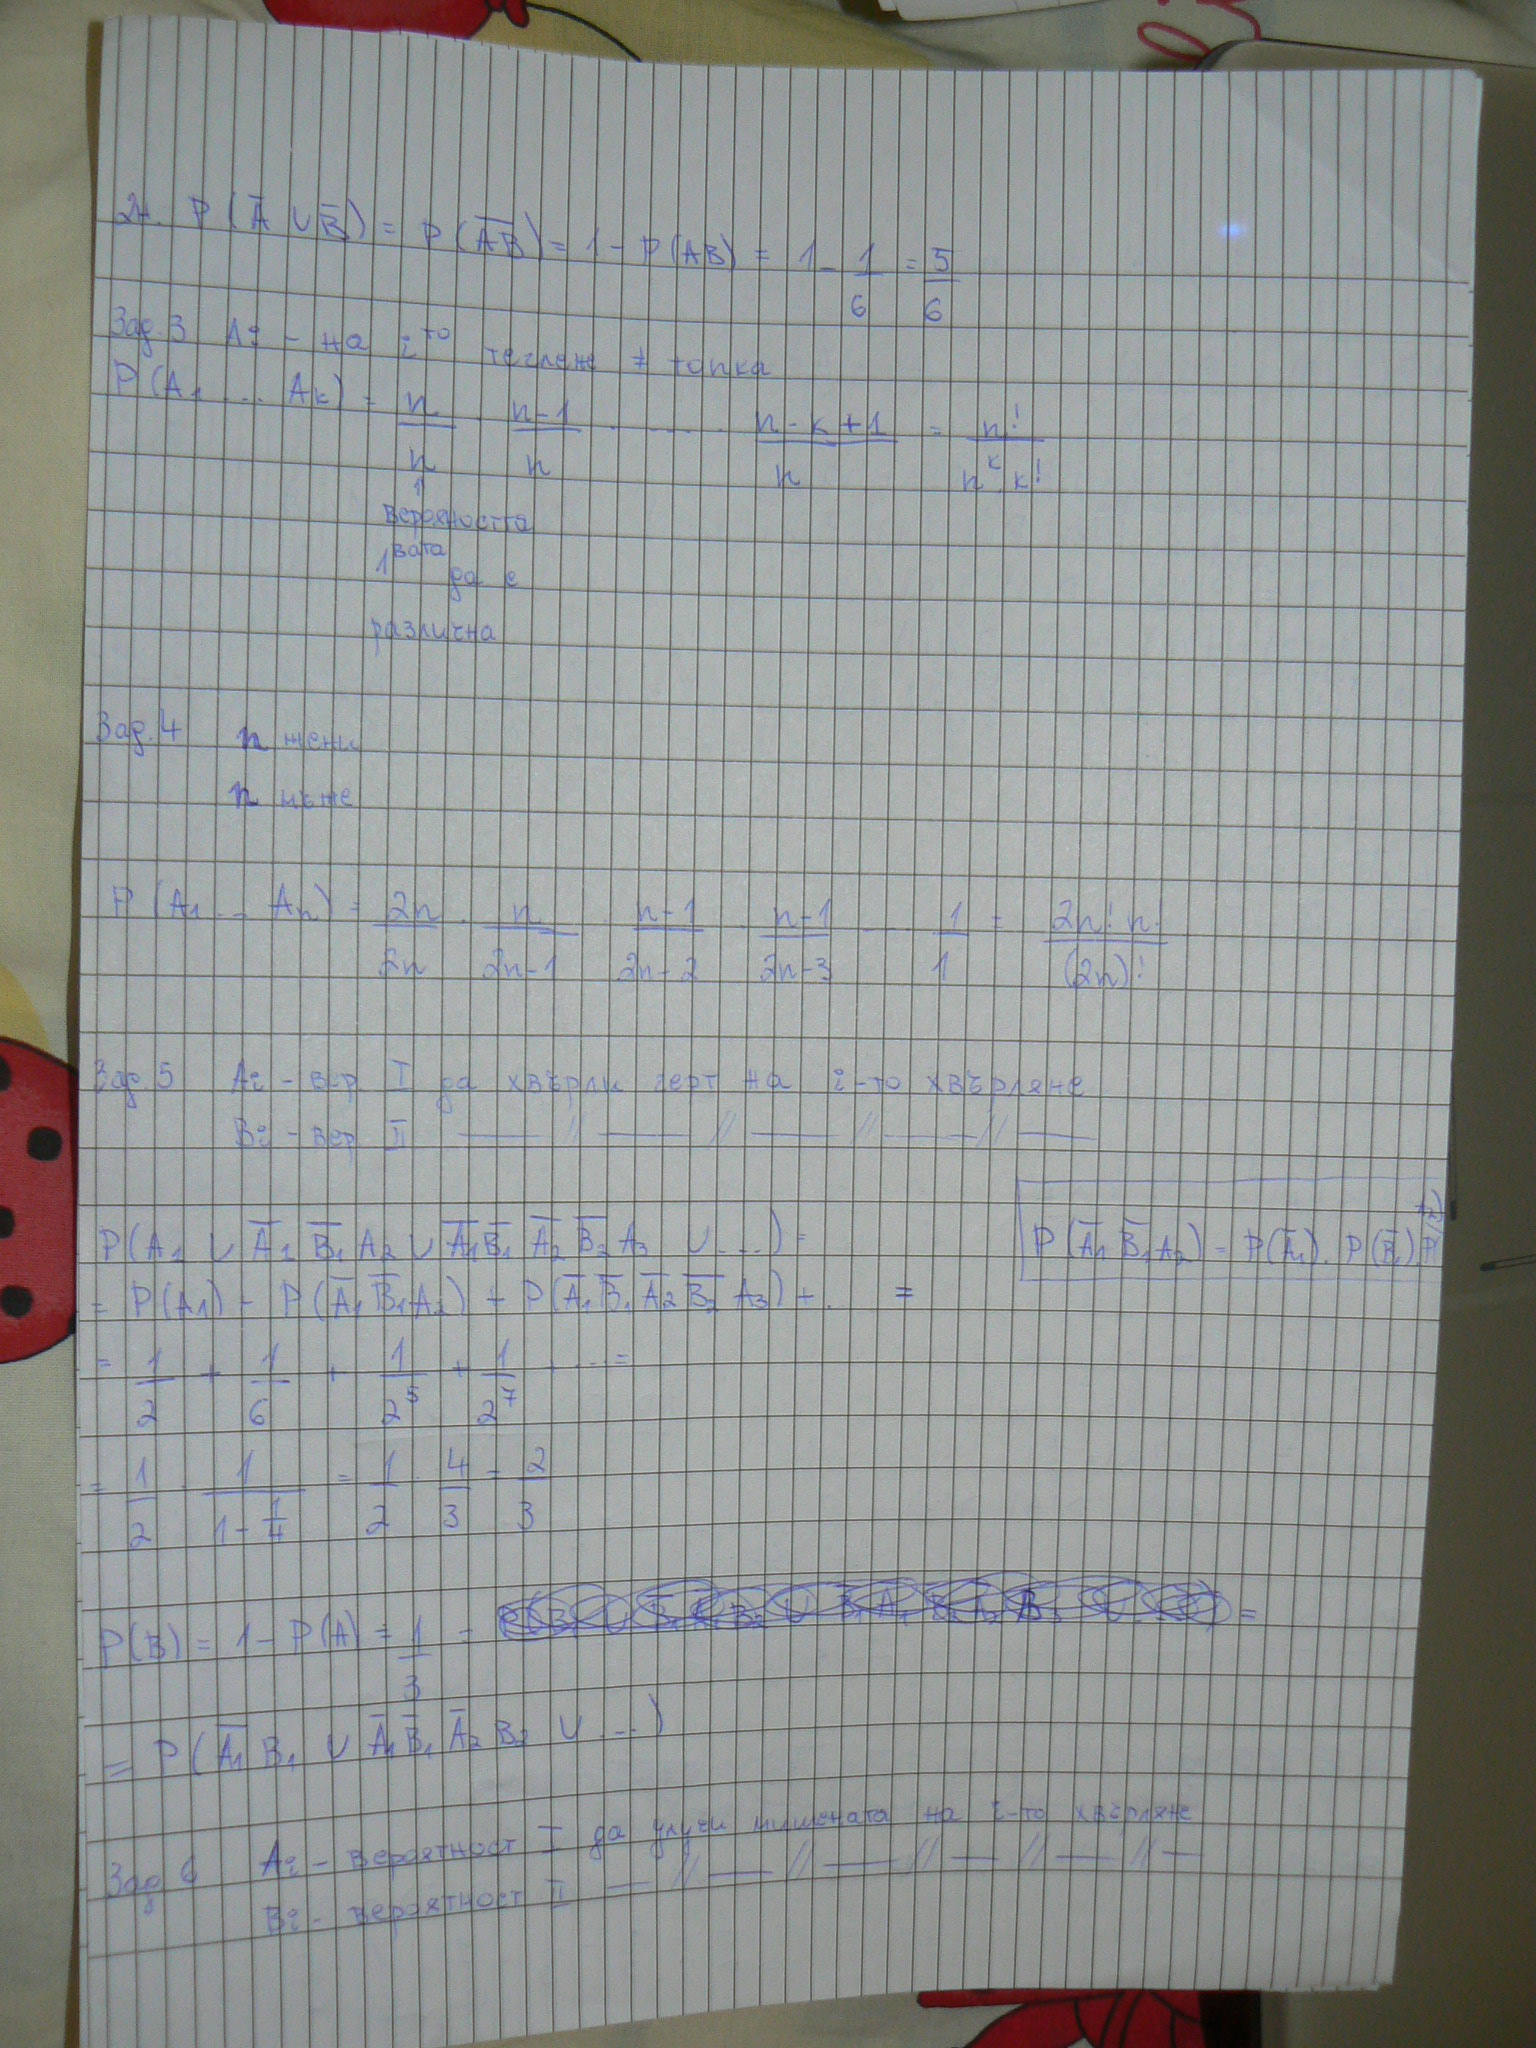 2). P(A̅ ∪ B̅) = P(A̅B̅) = 1 - P(AB) = 1 - 1/6 = 5/6
Зад. 3 Ai - на i то теглене ≠ топка
P(A1 ... Ak) = n/n . (n-1)/n . ..... (n-k+1)/n = n!/(n^k . k!)
↑
вероятността
1 вата да е
различна
Зад. 4 n жени
n мъже
P(A1 ... An) = 2n/2n . n/(2n-1) . (n-1)/(2n-2) . (n-1)/(2n-3) ... 1/1 = 2n! n!/(2n)!
Зад 5 Ai - вер I да хвърли герт на i-то хвърляне
Bi - вер II —— // —— // —— // —— // ——
P(A1 ∪ A̅1 B̅1 A2 ∪ A̅1 B̅1 A̅2 B̅2 A3 ∪ ...) =
P(A̅1 B̅1 A2) = P(A̅1) . P(B̅1) . P(A2)
= P(A1) + P(A̅1 B̅1 A2) + P(A̅1 B̅1 A̅2 B̅2 A3) + . =
= 1/2 + 1/6 + 1/2^5 + 1/2^7 + ... =
= 1/2 . 1/(1 - 1/4) = 1/2 . 4/3 = 2/3
P(B) = 1 - P(A) = 1/3 = =
= P(A̅1 B1 ∪ A̅1 B̅1 A̅2 B2 ∪ ...)
Зад 6 Ai - вероятност I да улучи мишената на i-то хвърляне
Bi - вероятност II — // — // — // — // — // —